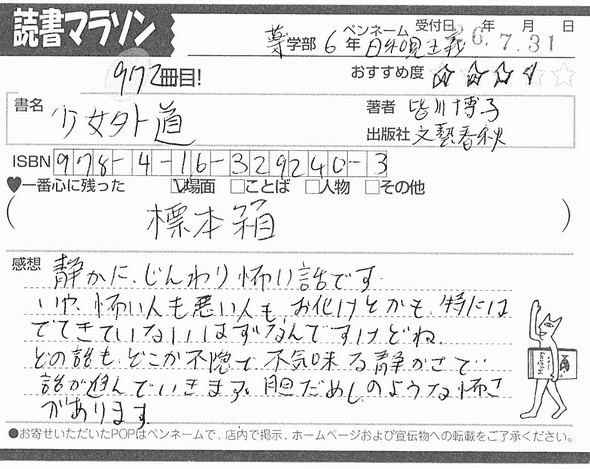 読書マラソン
ペンネーム 受付日 年 月 日
薬学部 6年 日和見主義 26.7.31
972冊目!
おすすめ度 ☆☆☆☆☆
書名 少女外道
著者 皆川博子
出版社 文藝春秋
ISBN 978-4-16-329240-3
♥一番心に残った ☑場面 □ことば □人物 □その他
(標本箱)
感想 静かに、じんわり怖い話です。
いや、怖い人も悪い人も、お化けとかも、特には
でてきていないはずなんですけどね。
どの話も、どこか不穏で不気味な静かさで
話が進んでいきます。胆だめしのような怖さ
があります。
●お寄せいただいたPOPはペンネームで、店内で掲示、ホームページおよび宣伝物への転載をご了承ください。